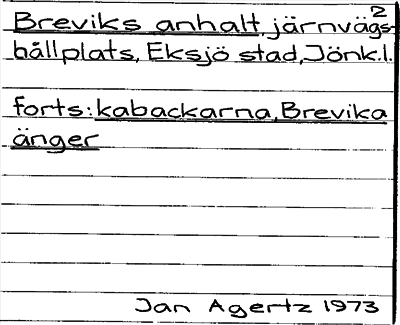 2
Breviks anhalt, järnvägs-
hållplats, Eksjö stad, Jönk.l.
forts: kabackarna, Brevika
änger
Jan Agertz 1973